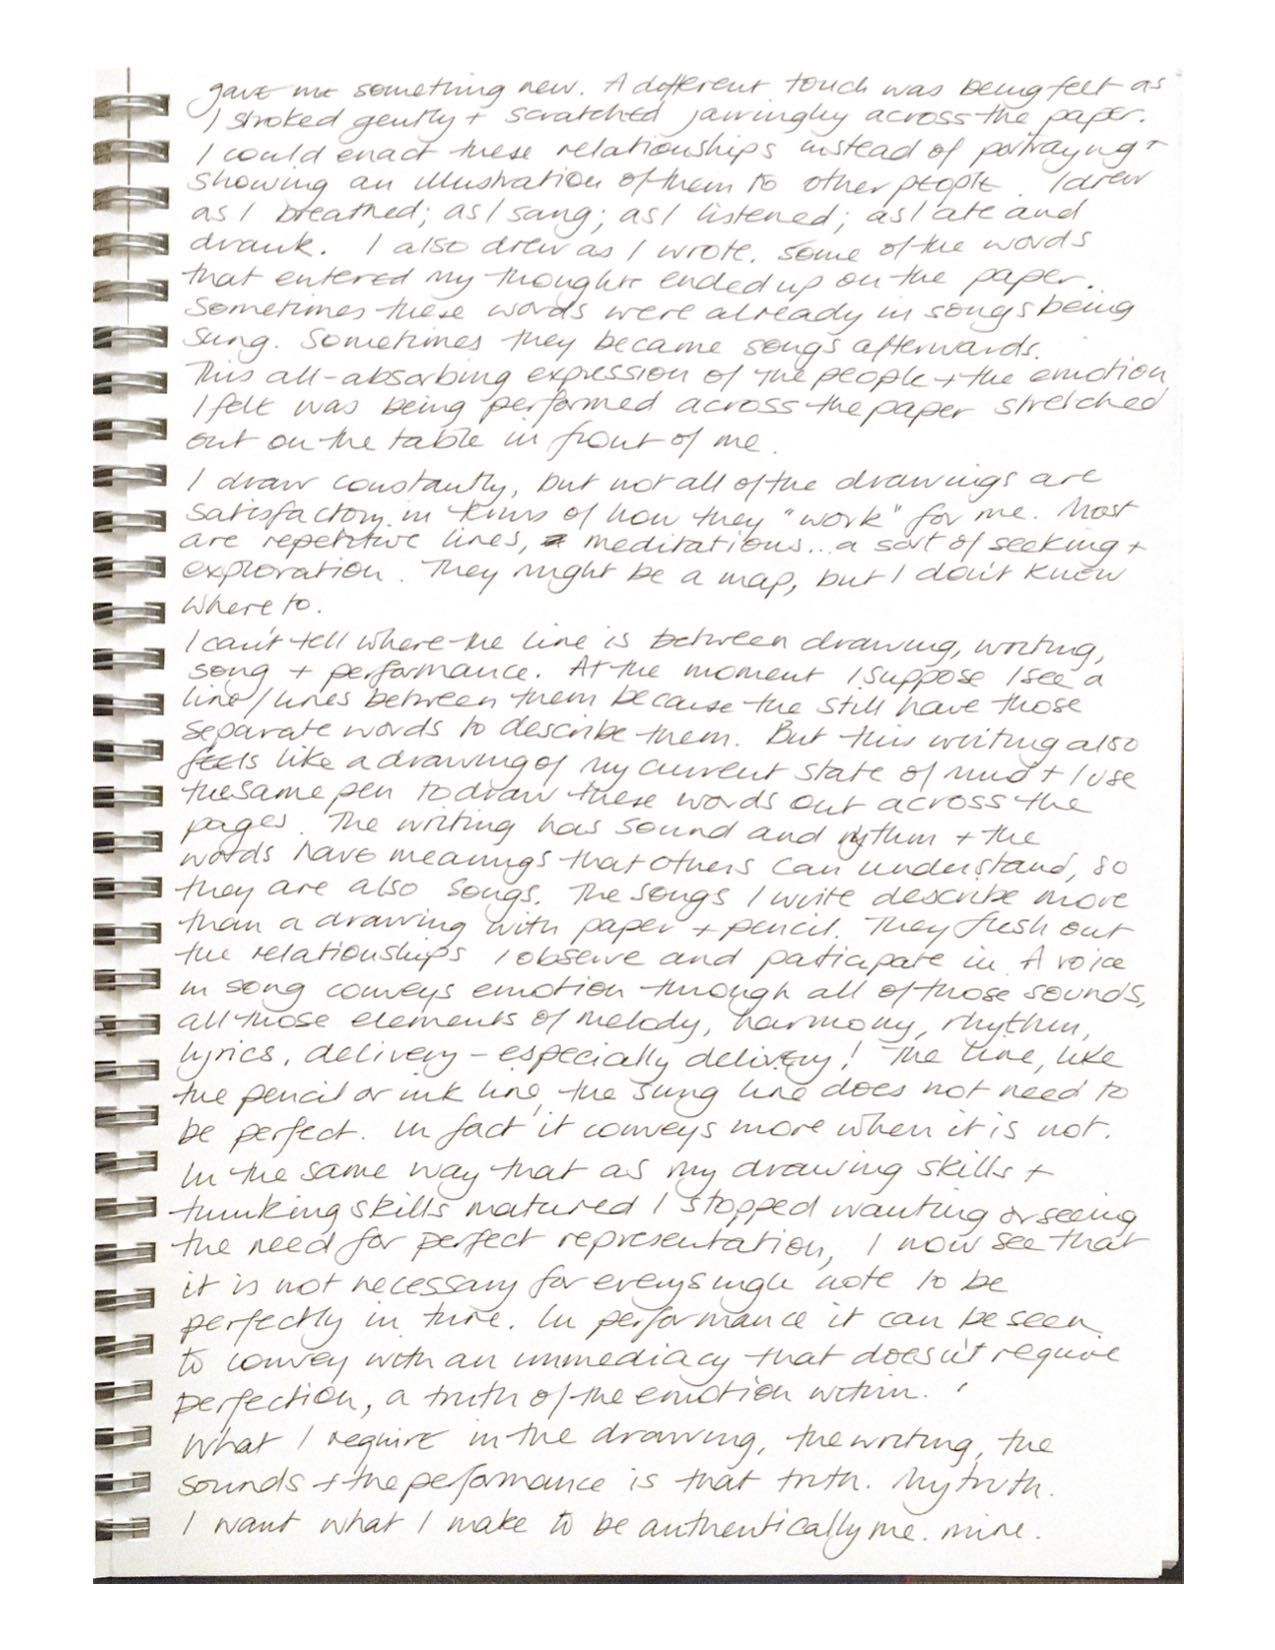 gave me something new. A different touch was being felt as
I stroked gently + scratched jarringly across the paper.
I could enact these relationships instead of portraying +
showing an illustration of them to other people. I drew
as I breathed; as I sang; as I listened; as I ate and
drank. I also drew as I wrote. Some of the words
that entered my thoughts ended up on the paper.
Sometimes these words were already in songs being
sung. Sometimes they became songs afterwards.
This all-absorbing expression of the people + the emotion
I felt was being performed across the paper stretched
out on the table in front of me.
I draw constantly, but not all of the drawings are
satisfactory in terms of how they "work" for me. Most
are repetitive lines, meditations... a sort of seeking +
exploration. They might be a map, but I don't know
where to.
I can't tell where the line is between drawing, writing,
song + performance. At the moment I suppose I see a
line/lines between them because the still have those
separate words to describe them. But this writing also
feels like a drawing of my current state of mind + I use
the same pen to draw these words out across the
pages. The writing has sound and rythm + the
words have meanings that others can understand, so
they are also songs. The songs I write describe more
than a drawing with paper + pencil. They flesh out
the relationships I observe and participate in. A voice
in song conveys emotion through all of those sounds,
all those elements of melody, harmony, rhythm,
lyrics, delivery - especially delivery! The line, like
the pencil or ink line, the sung line does not need to
be perfect. In fact it conveys more when it is not.
In the same way that as my drawing skills +
thinking skills matured I stopped wanting or seeing
the need for perfect representation, I now see that
it is not necessary for every single note to be
perfectly in tune. In performance it can be seen
to convey with an immediacy that doesn't require
perfection, a truth of the emotion within.
What I require in the drawing, the writing, the
sounds + the performance is that truth. My truth.
I want what I make to be authentically me. mine.